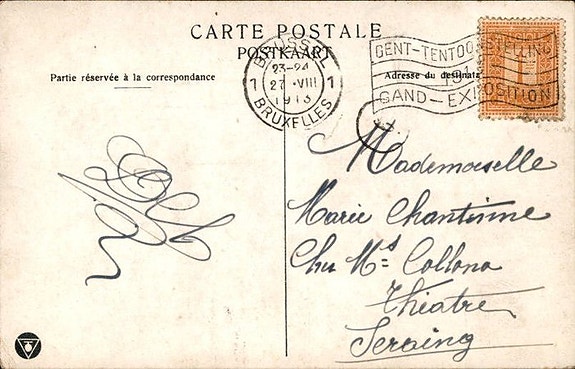 CARTE POSTALE
POSTKAART
Partie réservée à la correspondance
Adresse du destinata
BRUSSEL
23-24
1 27 VIII 1
1913
BRUXELLES
GENT-TENTOONSTELLING
191
GAND-EXPOSITION
1
Mademoiselle
Marie Chantinne
Chez Ms Collona
Théatre
Seraing